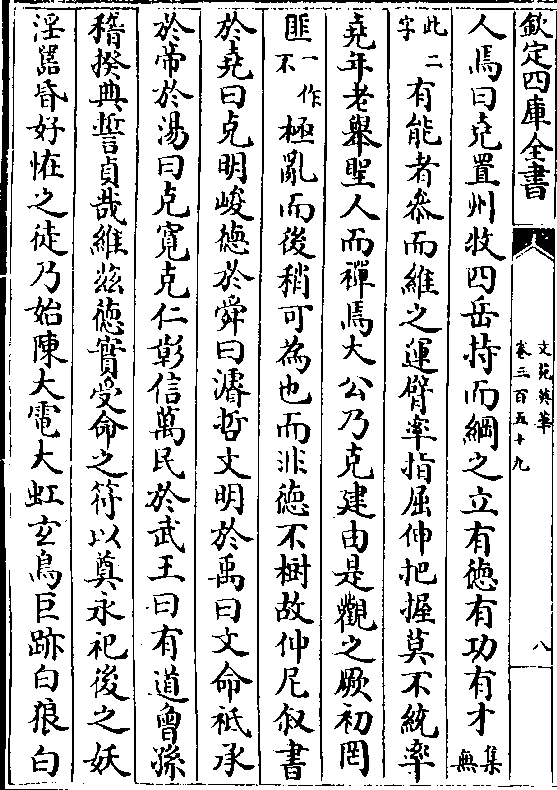 欽定四庫全書
文苑英華
卷三百五十九
八
人焉曰堯置州牧四岳持而綱之立有德有功有才集無
此二字有能者參而維之運臂率指屈伸把握莫不統率
堯年老舉聖人而禪焉大公乃克建由是觀之厥初罔
匪一作不極亂而後稍可為也而非德不樹故仲尼叙書
於堯曰克明峻德於舜曰濬哲文明於禹曰文命祗承
於帝於湯曰克寛克仁彰信萬民於武王曰有道曾孫
稽揆典誓貞哉維兹德實受命之符以奠永祀後之妖
淫嚚昏好怪之徒乃始陳大電大虹玄鳥巨跡白狼白